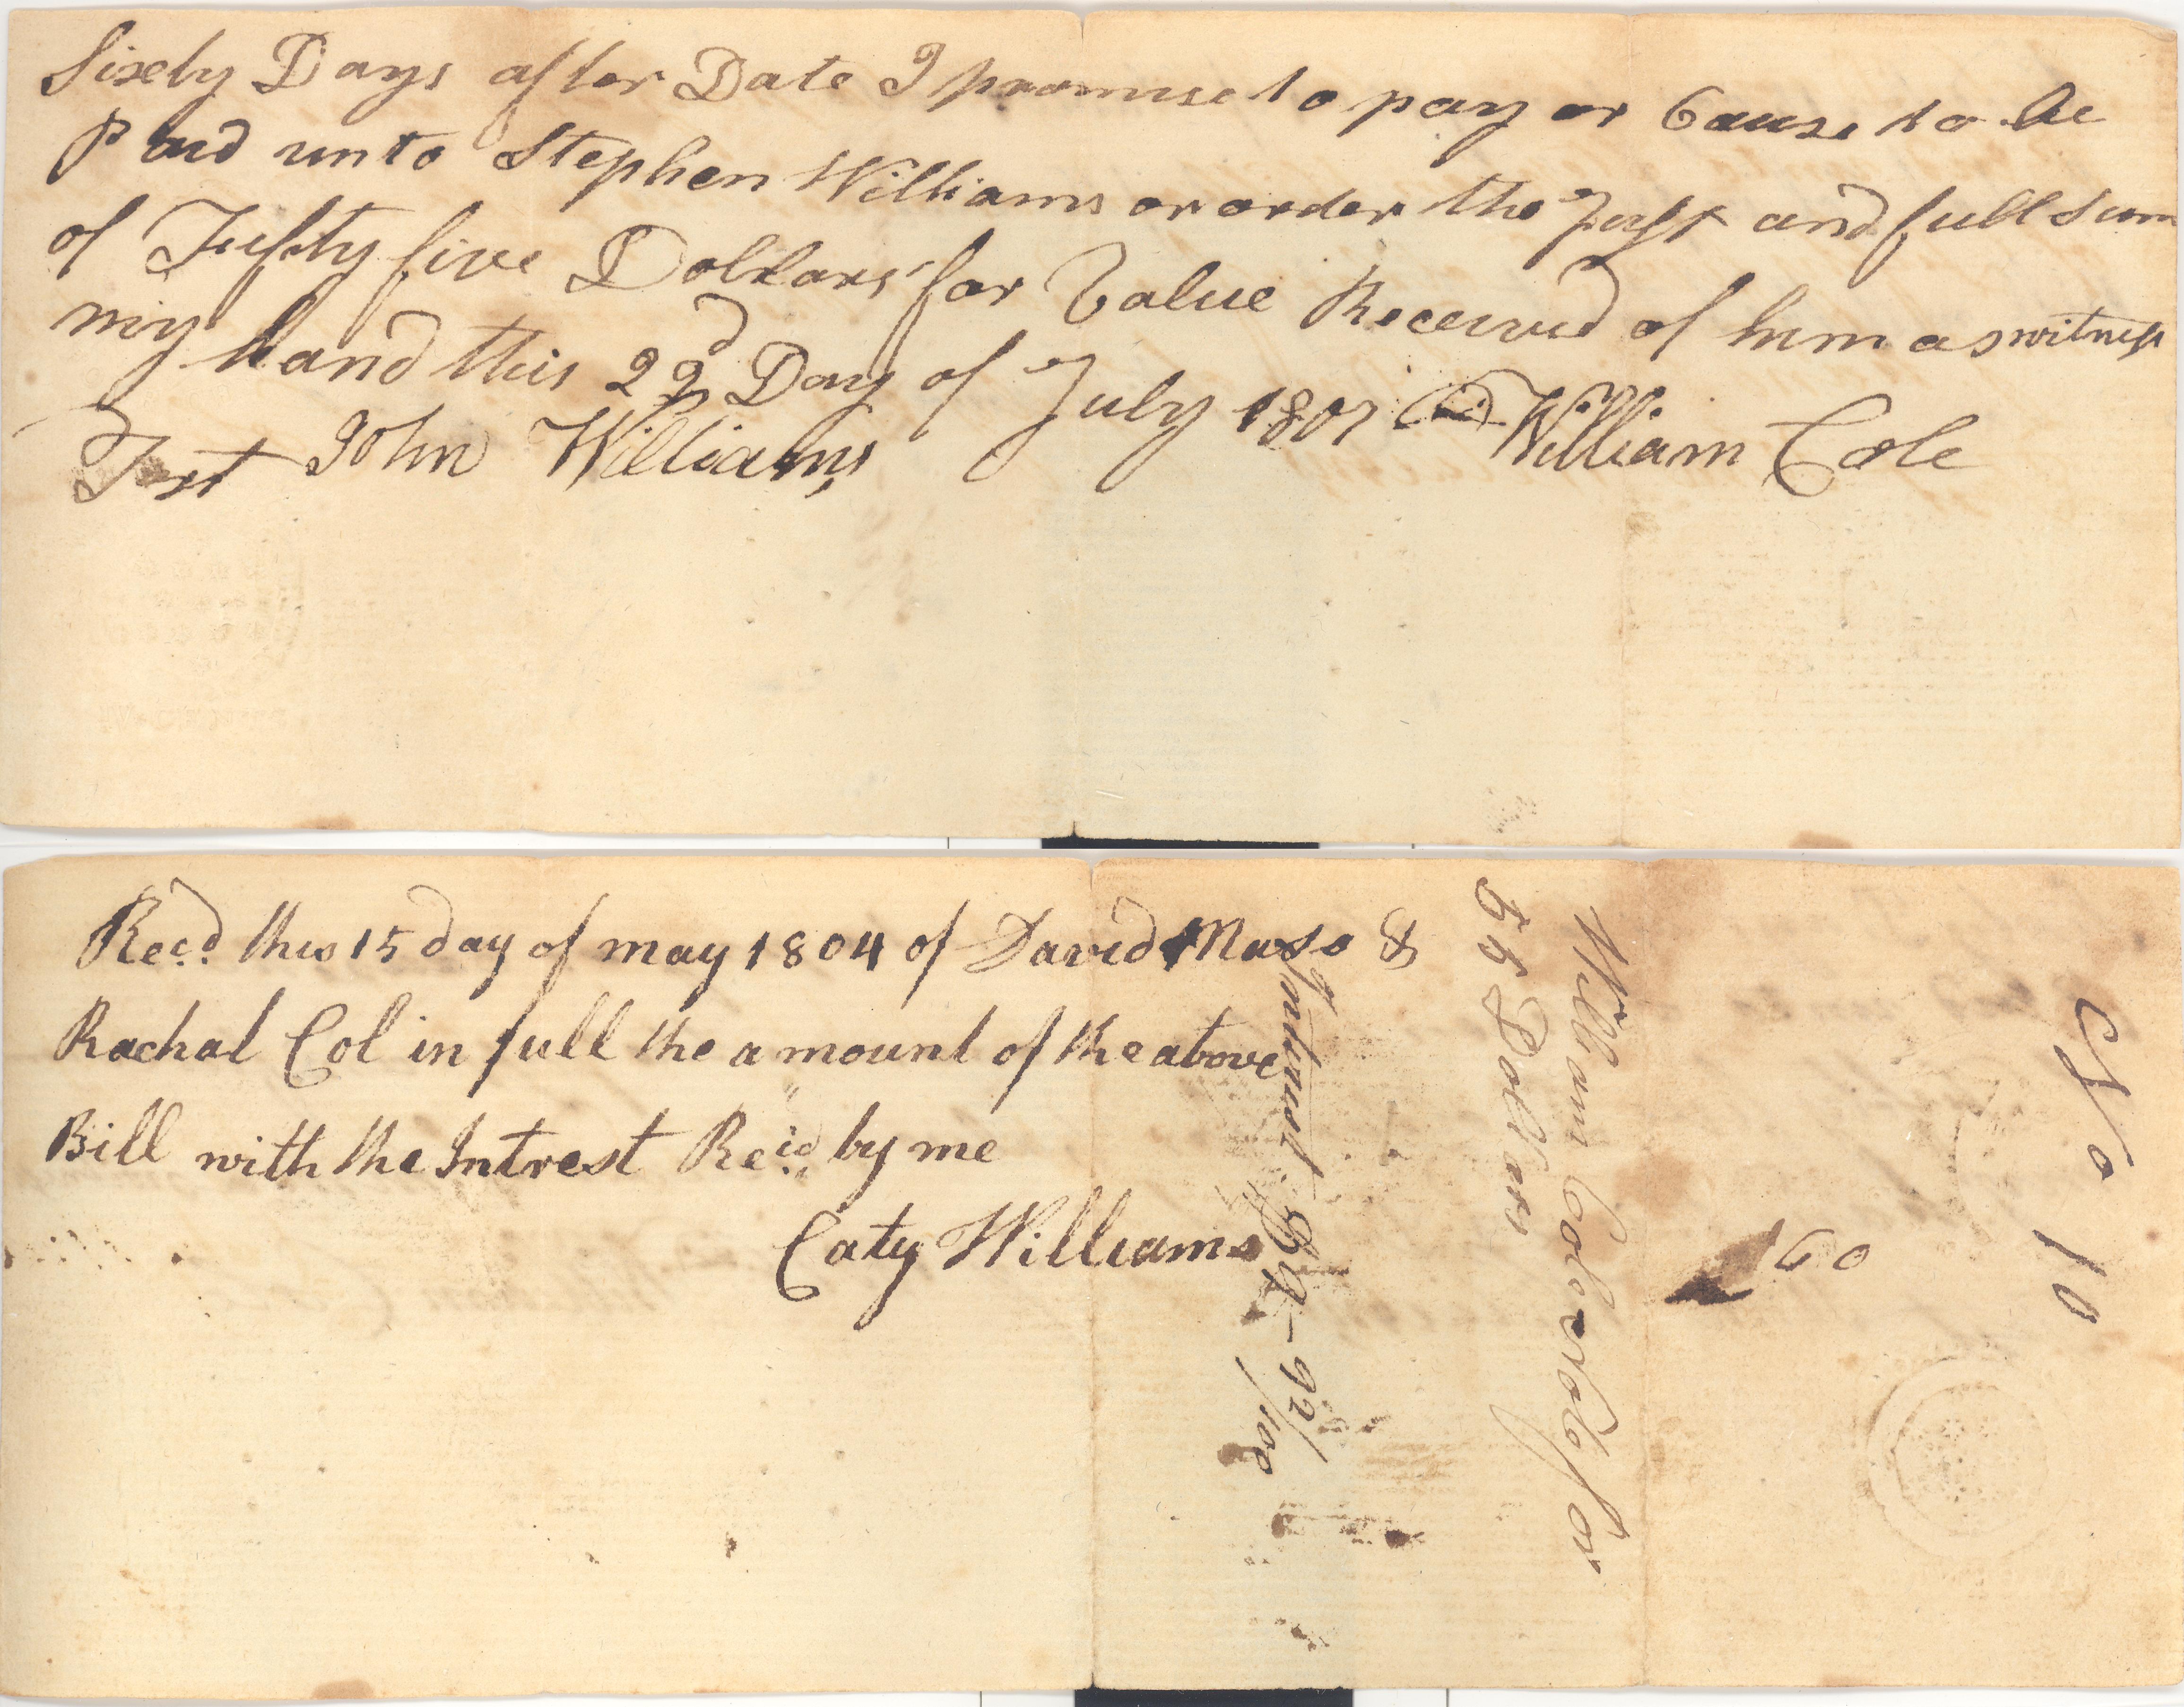 Sixety Days after Date I promise to pay or Cause to be
Paid unto Stephen Williams or order the Just and full Sum
of Fiefity five Dollars for Value Received of him as witness
my hand this 22d Day of July 1801 William Cole
Test John Williams
Recd this 15 day of may 1804 of David &
Rachal Col in full the amount of the above
Bill with the Intrest Recd by me
Caty Williams
Intrest 9-92/100
55 Dollars
William Coles Note for
60
No 10